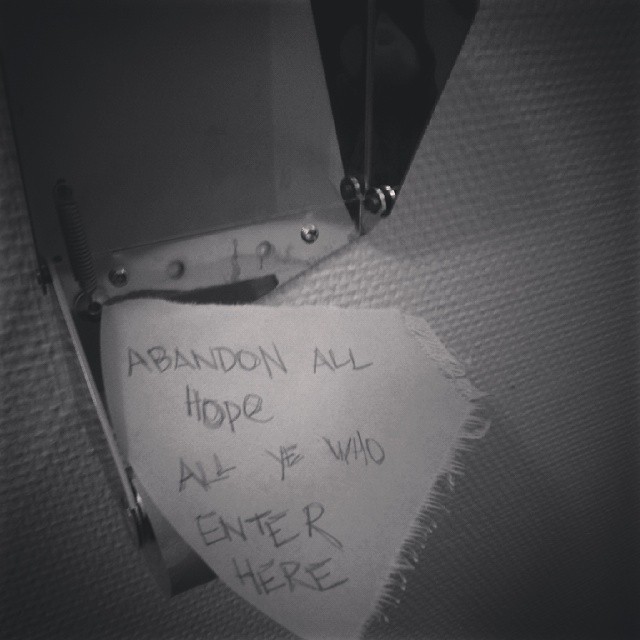 ABANDON ALL
HOPE
ALL YE WHO
ENTER
HERE